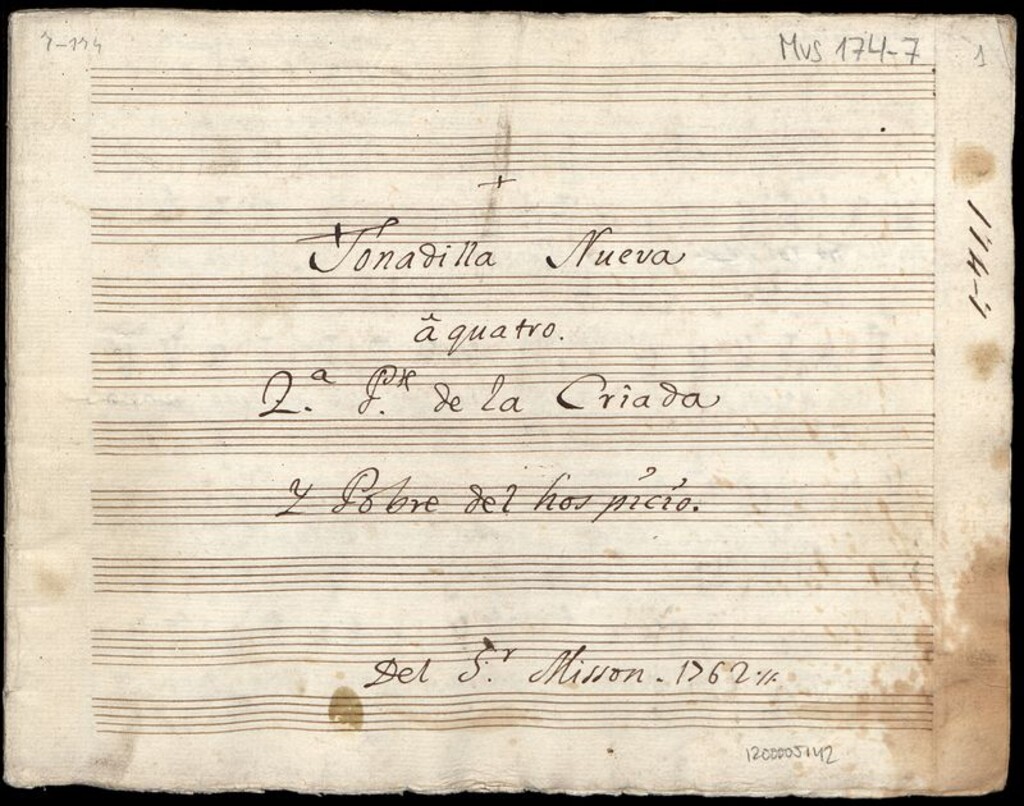 7-174
Mus 174-7
1
+
Tonadilla Nueva
â quatro.
2.ª P.te de la Criada
Y Pobre del hospicio.
Del S.r Misson. 1762.//.
174-7
1200005142